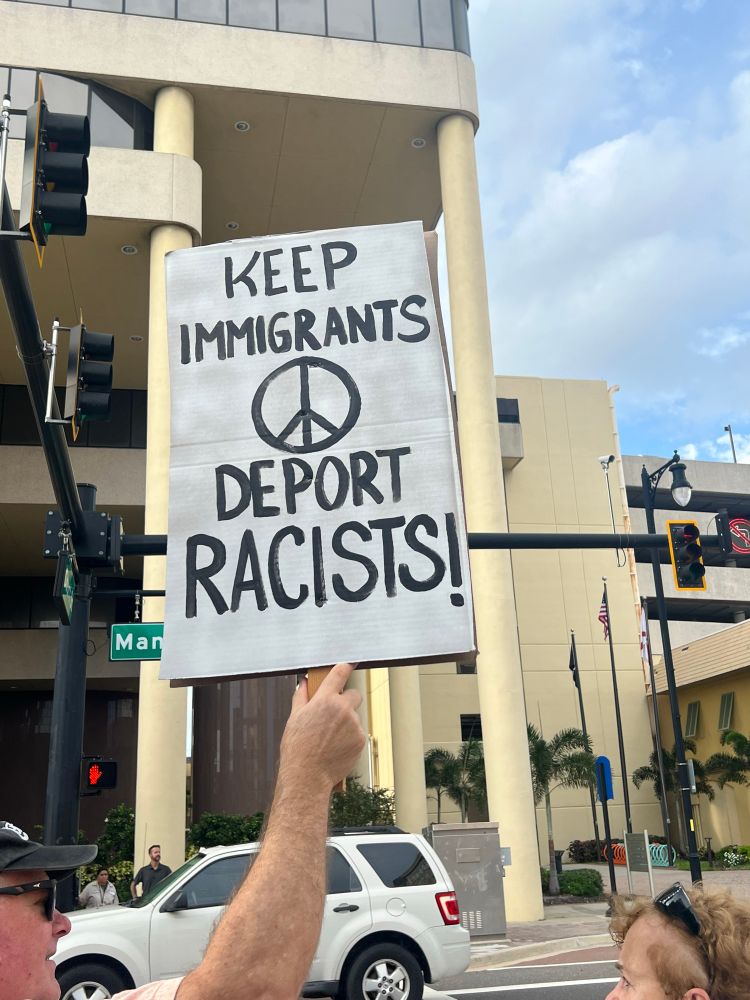 KEEP
IMMIGRANTS
DEPORT
RACISTS!
Man